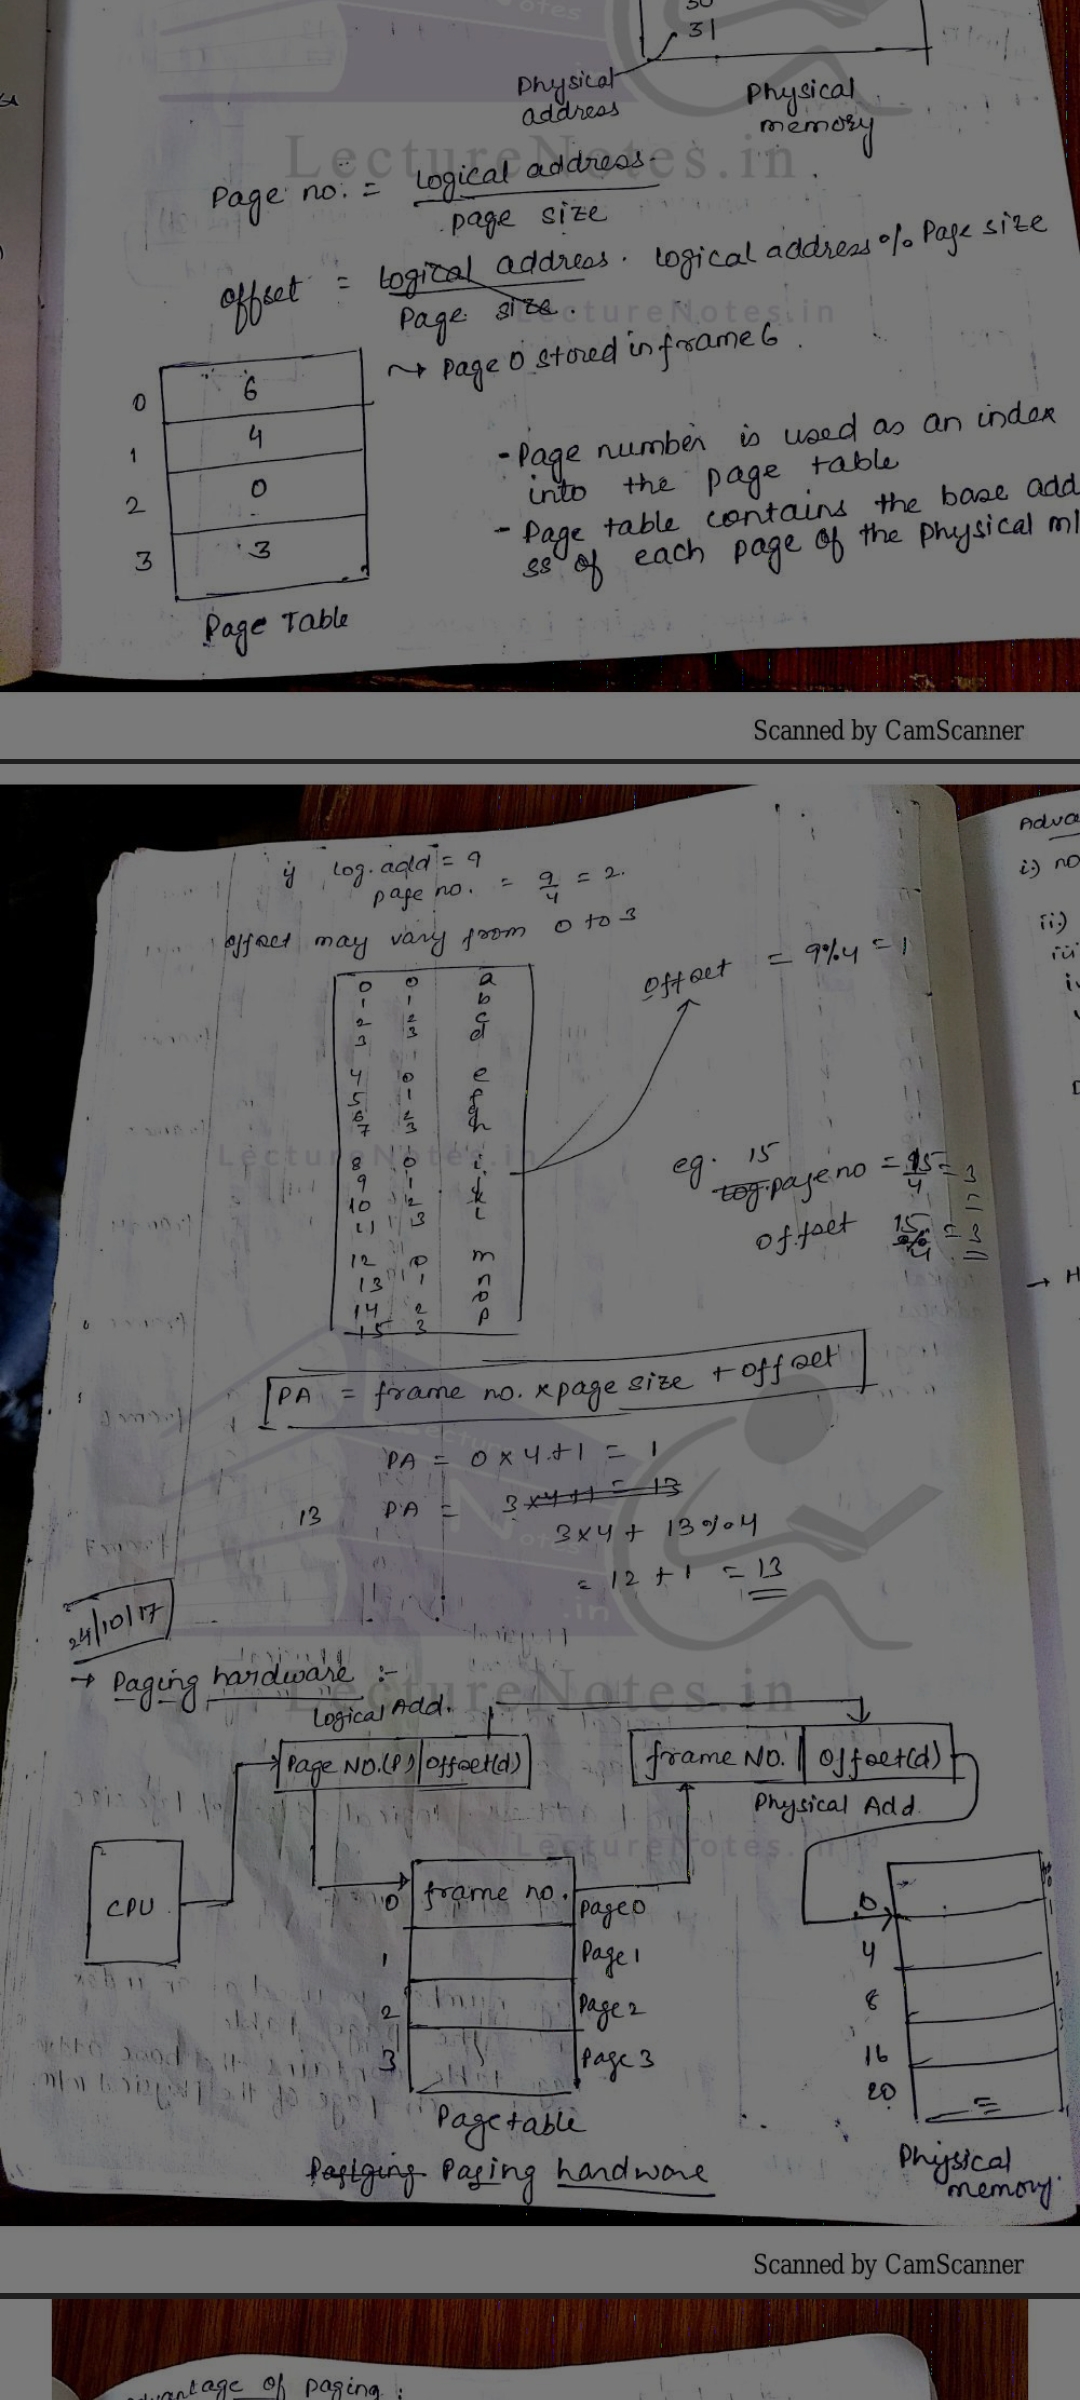 30
31
Physical
address
Physical
memory
LectureNotes.in
Page no. = logical address
page size
offset = logical address. logical address % Page size
Page size.
LectureNotes.in
→ Page 0 stored in frame 6.
0 6
1 4
2 0
3 3
Page Table
- Page number is used as an index
into the page table
- Page table contains the base add
ss of each page of the physical m/
Scanned by CamScanner
Adva
i.) no
ii.)
log. add = 9
page no. = 9/4 = 2.
offset may vary from 0 to 3
offset = 9%4 = 1
0 0 a
1 1 b
2 2 c
3 3 d
4 0 e
5 1 f
6 2 g
7 3 h
8 0 i
9 1 j
10 2 k
11 3 l
12 0 m
13 1 n
14 2 o
15 3 p
LectureNotes.in
eg. 15
log. page no = 15/4 = 3
offset 15 % 4 = 3
→ H
PA = frame no. x page size + offset
PA = 0 x 4 + 1 = 1
13 PA = 3 x 4 + 1 = 13
3 x 4 + 13 % 4
= 12 + 1 = 13
24/10/17
→ Paging hardware :-
LectureNotes.in
Logical Add.
Page NO.(P) offset(d)
frame NO. offset(d)
Physical Add.
LectureNotes.in
CPU
0 frame no. Page 0
1 Page 1
2 Page 2
3 Page 3
Page table
0
4
8
16
20
Physical
memory.
Paging hardware
Scanned by CamScanner
advantage of paging :